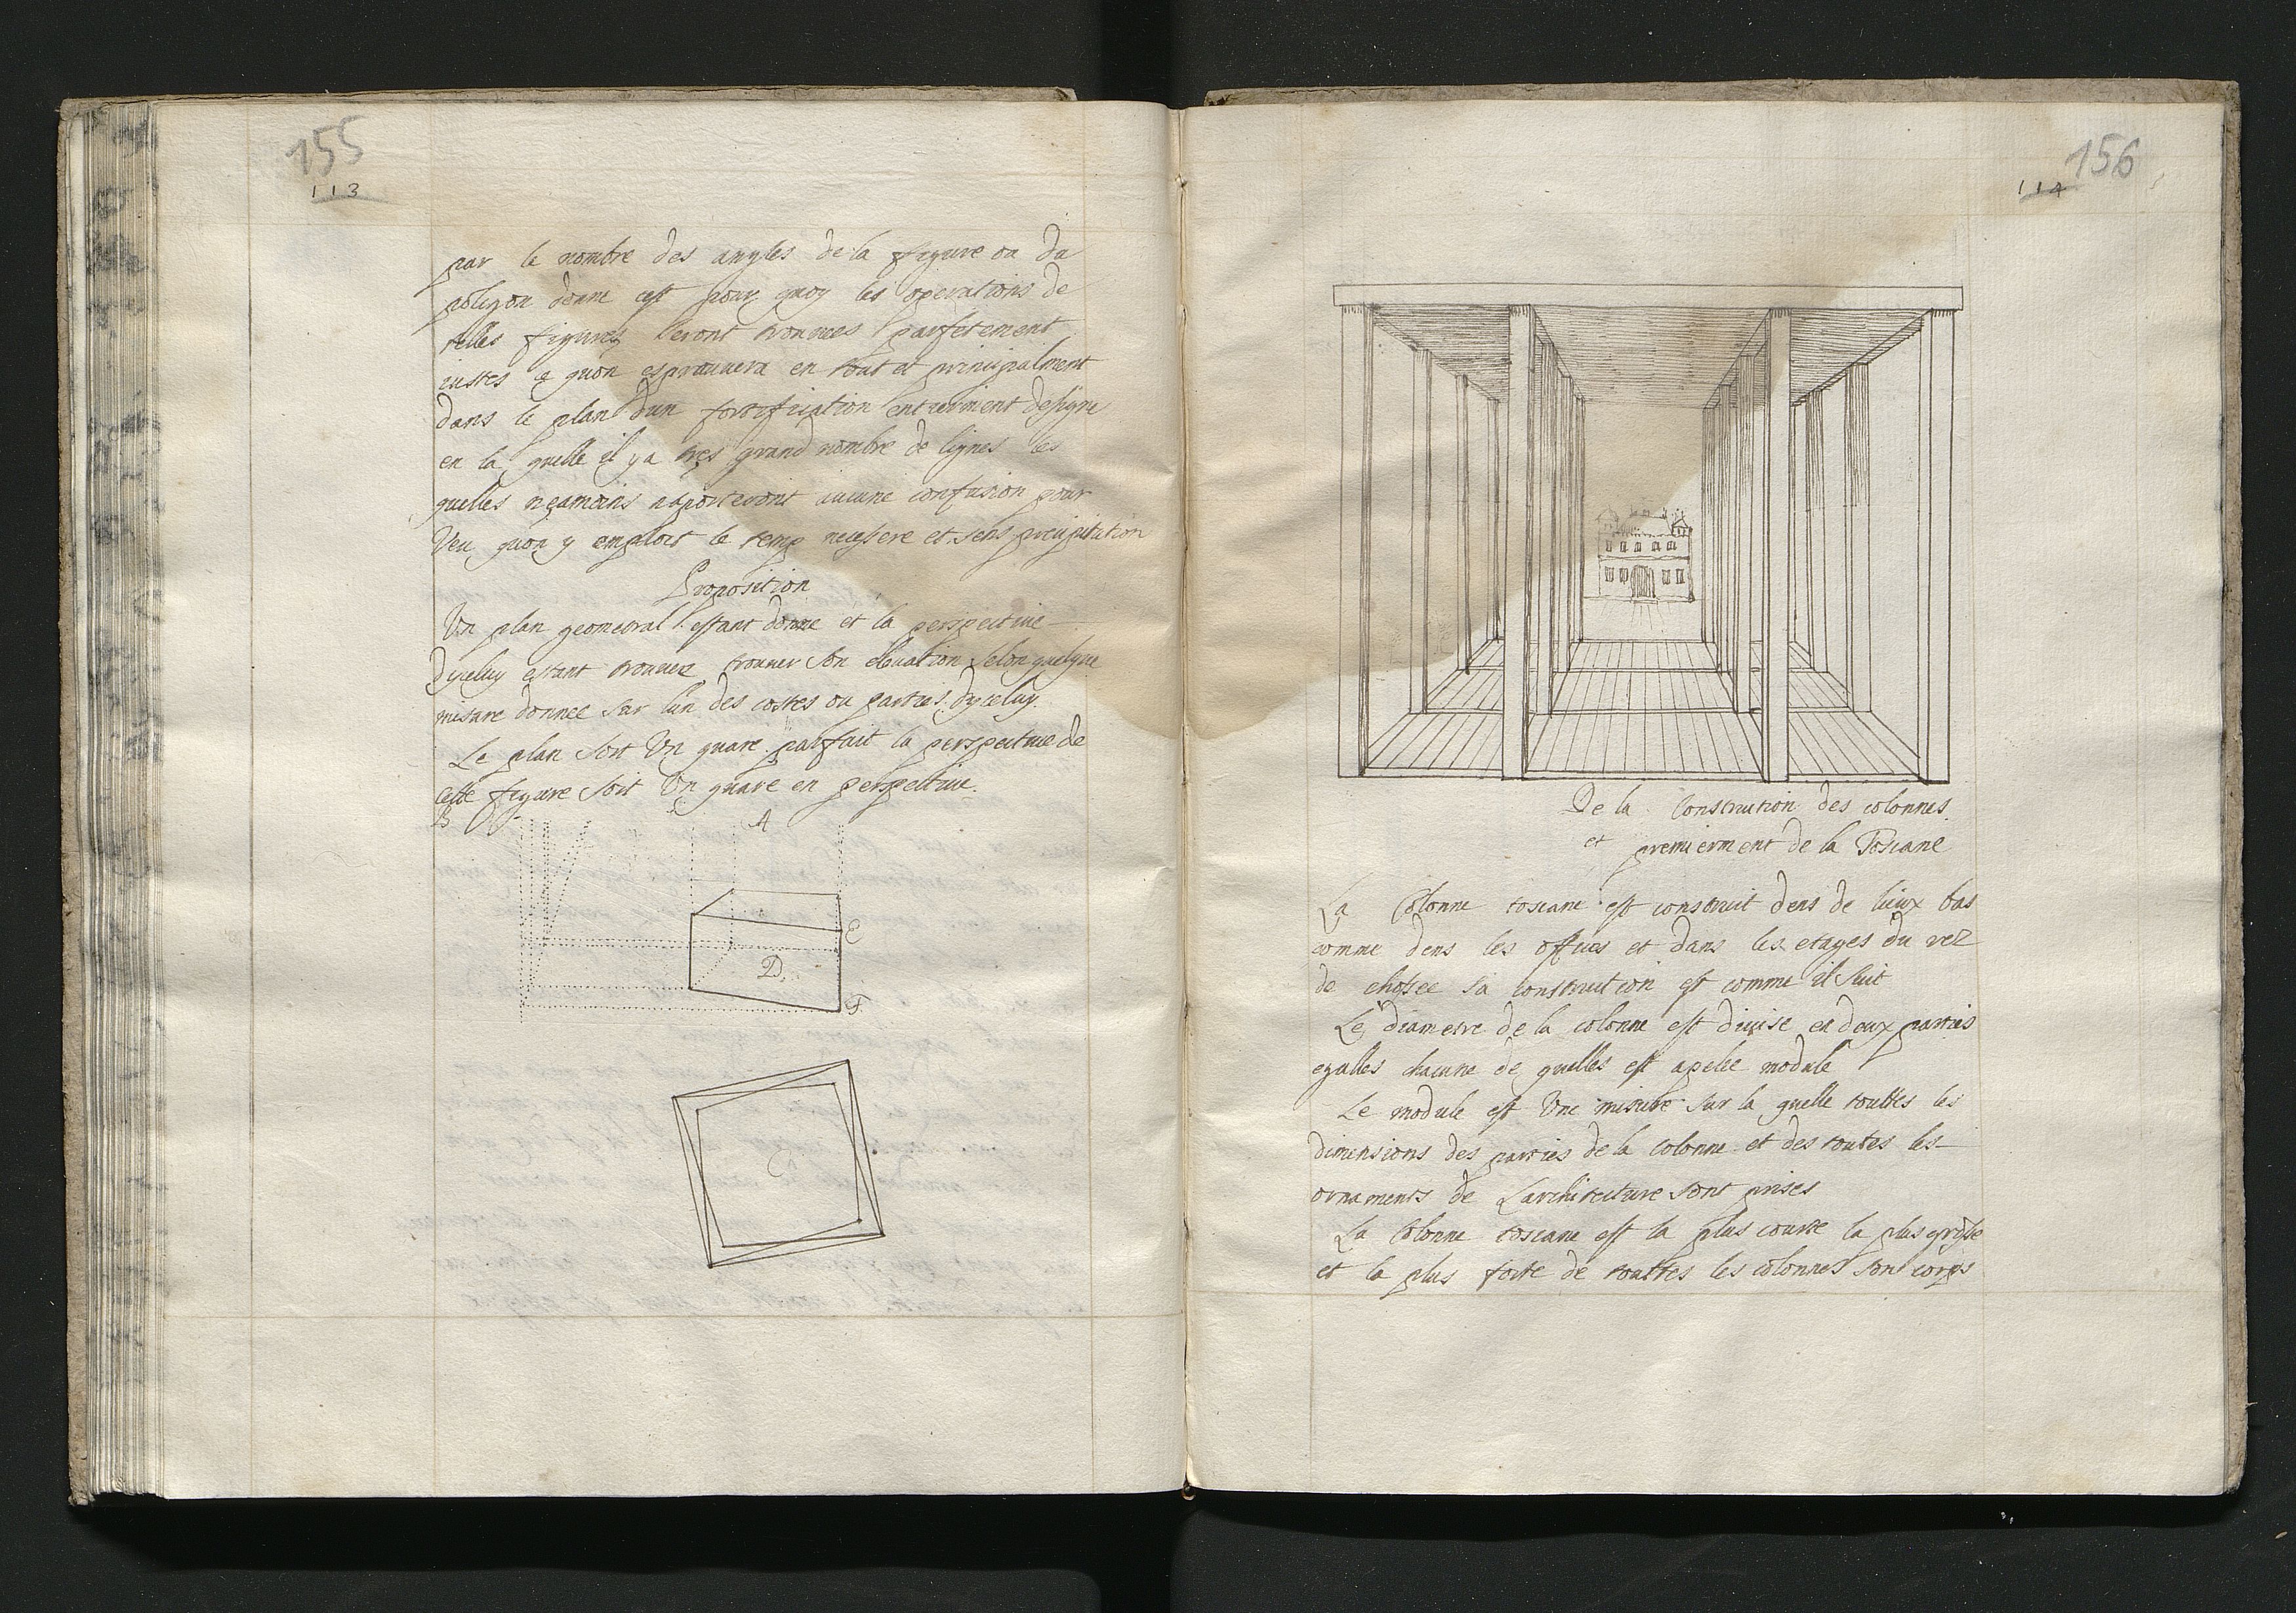 155
113
par le nombre des angles de la figure ou du
poligon donne cest pour quoy les operations de
telles figures seront trouvees parfetement
iustes ce quon esprouuera en tout et principalment
dans le plan dun fortification entierment designe
en la quelle il y a tres grand nombre de lignes les
quelles neamoins aporteront aucune confusion pour
Veu quon y emploit le temp necessere et sens precipitation
Proposition
Un plan geometral estant donne et la perspectiue
dyceluy estant trouuee trouuer son eleuation selon quelque
misure donnee sur lun des costes ou parties dyceluy.
Le plan soit Un quare parfait la perspectiue de
cette figure soit Un quare en perspectiue.
B A
E
D
F
C
156
114
De la Construction des colonnes
et premierment de la Toscane
La Colonne toscane est construit dens de lieux bas
comme dens les offices et dans les etages du rez
de chossee sa construction est comme il suit
Le diametre de la colonne est diuise en deux parties
egalles chacune de quelles est apelee module
Le module est Une misure sur la quelle touttes les
dimensions des parties de la colonne et des toutes les
ornaments de Larchitecture sont prises
La Colonne toscane est la plus courte la plus grosse
et la plus forte de touttes les colonnes son corps